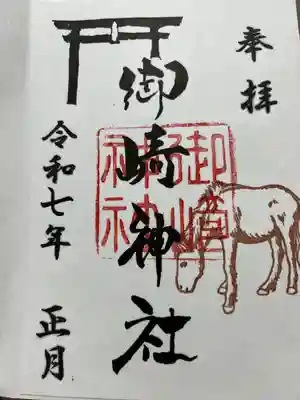 奉拝
御崎神社
御崎神社
令和七年 正月